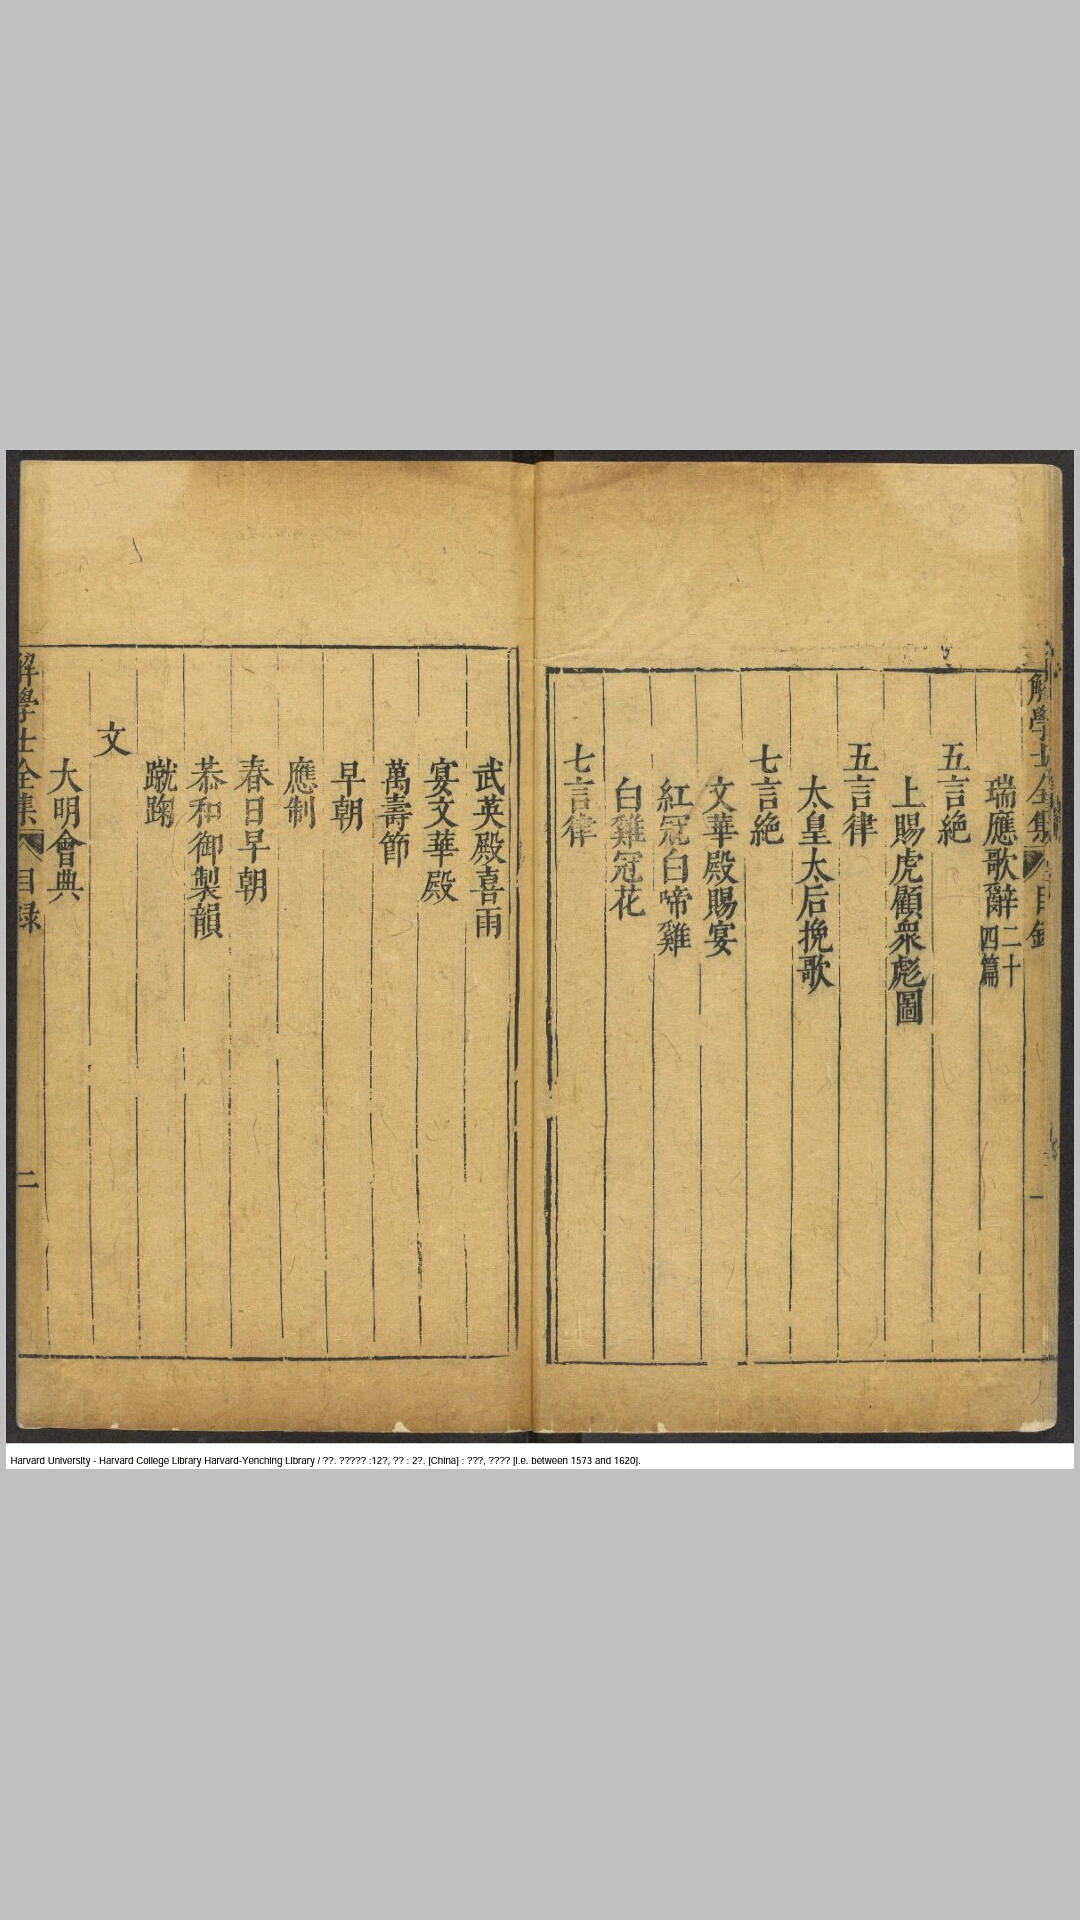 解學士全集 目錄 一
瑞應歌辭二十四篇
五言絶
上賜虎顧衆彪圖
五言律
太皇太后挽歌
七言絶
文華殿賜宴
紅冠白啼雞
白雞冠花
七言律
武英殿喜雨
宴文華殿
萬壽節
早朝
應制
春日早朝
恭和御製韻
蹴踘
文
大明會典
解學士全集 目録 二
Harvard University - Harvard College Library Harvard-Yenching Library / ??. ????? :12?, ?? : 2?. [China] : ???, ???? [i.e. between 1573 and 1620].